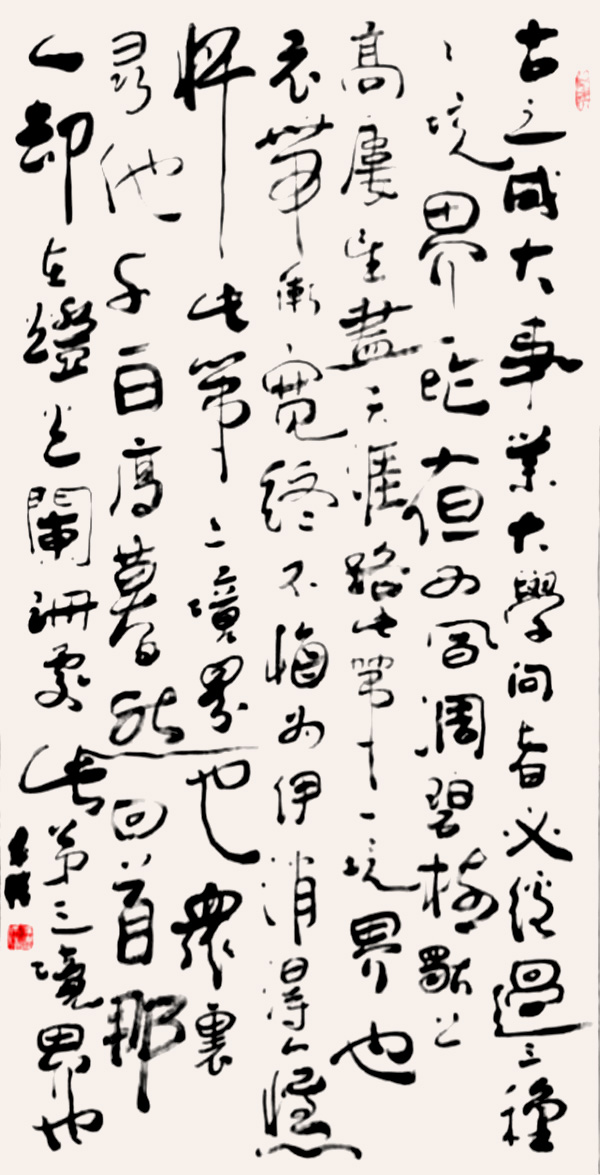 古之成大事業大學問皆必經過三種
之境界昨夜西風凋碧樹獨上
高樓望盡天涯路此第一境界也
衣帶漸寬終不悔為伊消得人憔
悴此第二境界也眾裏
尋他千百度驀然回首那
人卻在燈火闌珊處此第三境界也